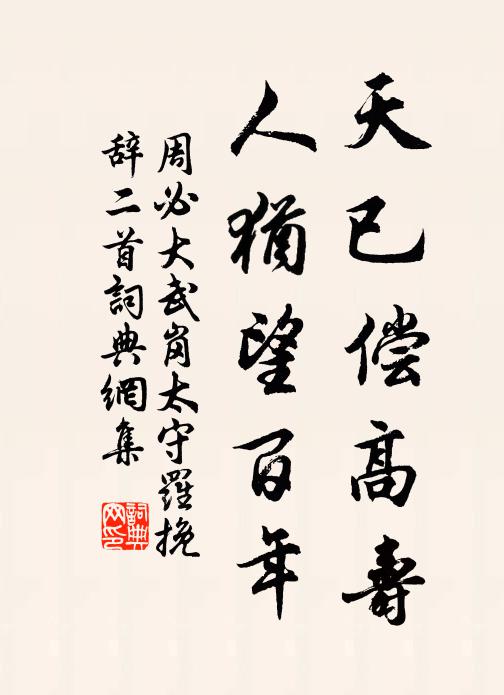 天已偿高壽
人猶望百年
周必大武岗太守羅挽
辞二首詞典網集
詞典网印